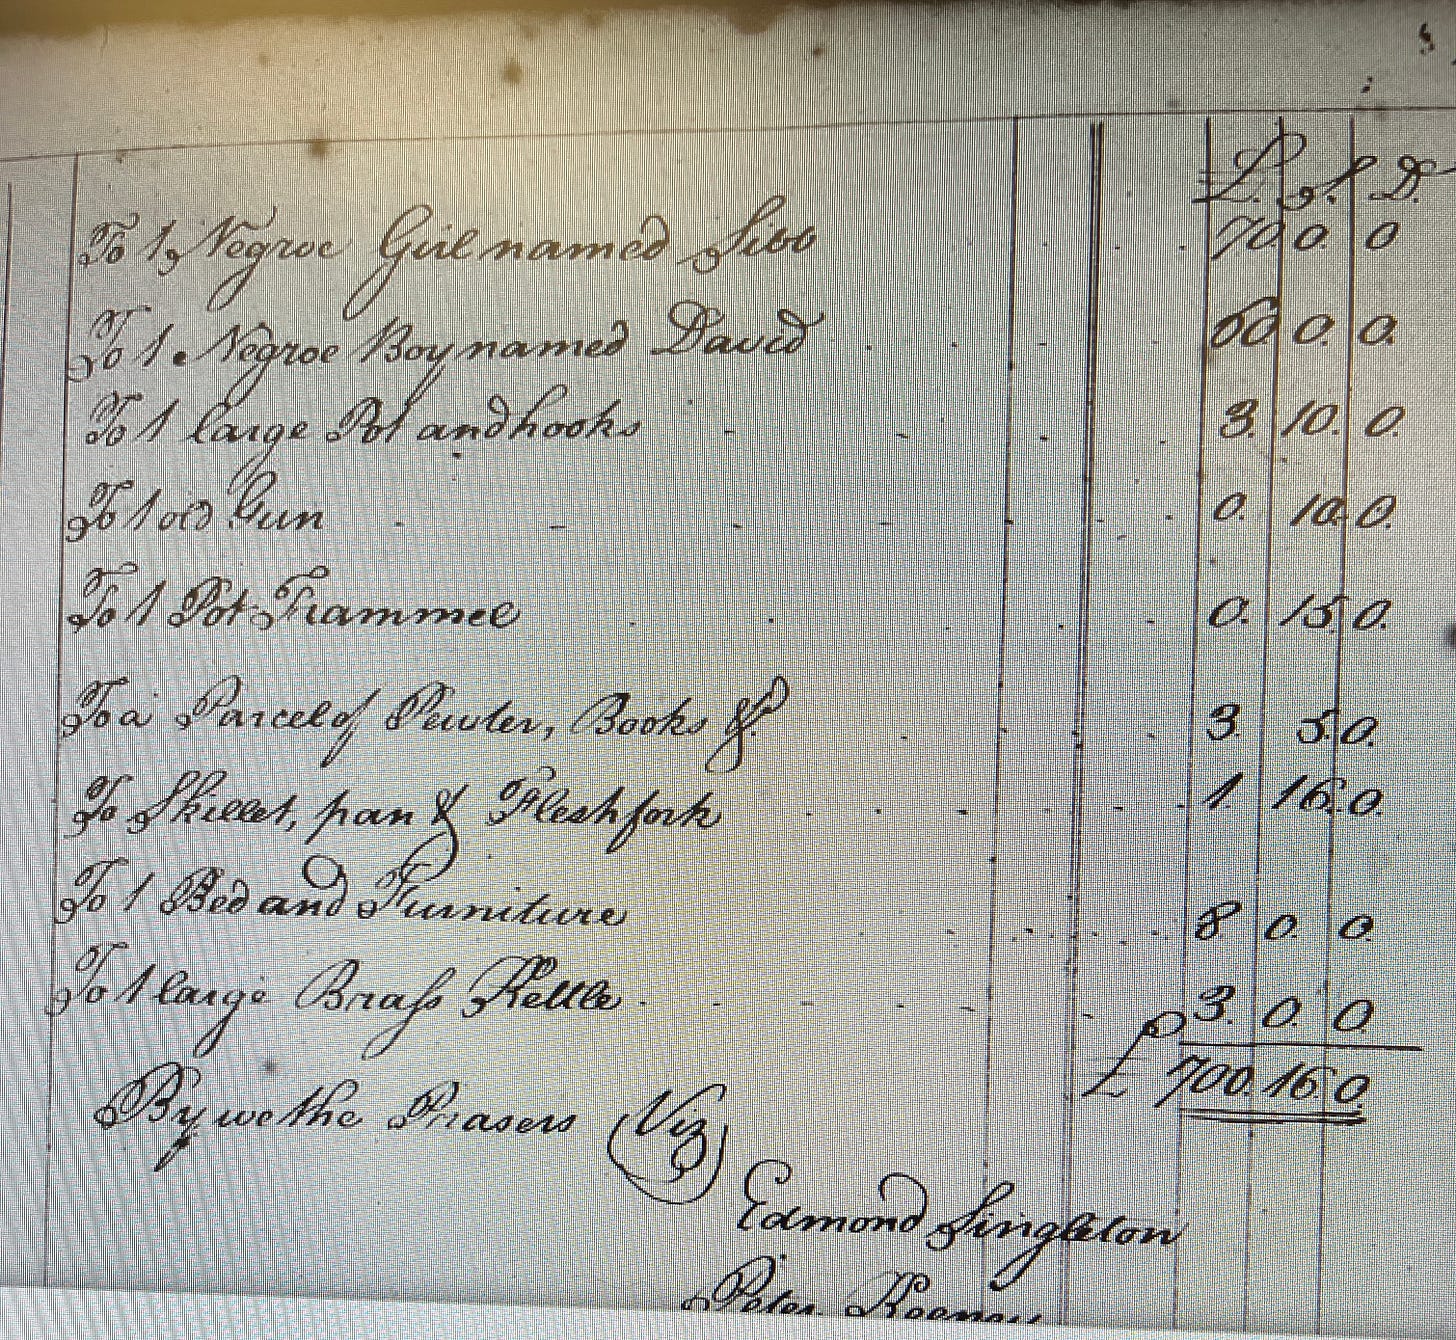 £. S. D.
To 1 Negroe Girl named Sibb 70 0. 0
To 1 Negroe Boy named David 60 0. 0.
To 1 large Pot and hooks 3. 10. 0.
To 1 old Gun 0. 10. 0.
To 1 Pot Trammel 0. 15. 0.
To a Parcel of Pewter, Books &c. 3. 5. 0.
To Skillet, pan & Flesh fork 1. 16. 0.
To 1 Bed and Furniture 8. 0. 0.
To 1 large Brass Kettle 3. 0. 0
£ 700. 16. 0.
By we the Prasers (Viz)
Edmond Singleton
Peter